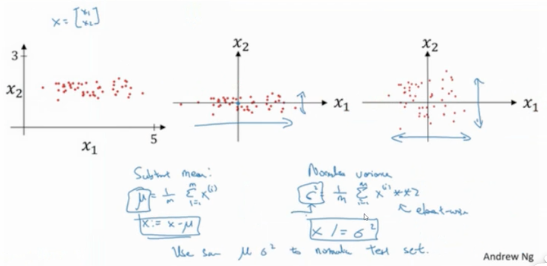 x = [x₁ x₂]
3
x₂
x₁
5
x₂
x₁
x₂
x₁
Subtract mean:
μ = 1/m Σᵢ₌₁ᵐ x⁽ⁱ⁾
x := x - μ
Normalize variance
σ² = 1/m Σᵢ₌₁ᵐ x⁽ⁱ⁾ ** 2
element-wise
x /= σ²
Use same μ σ² to normalize test set.
Andrew Ng